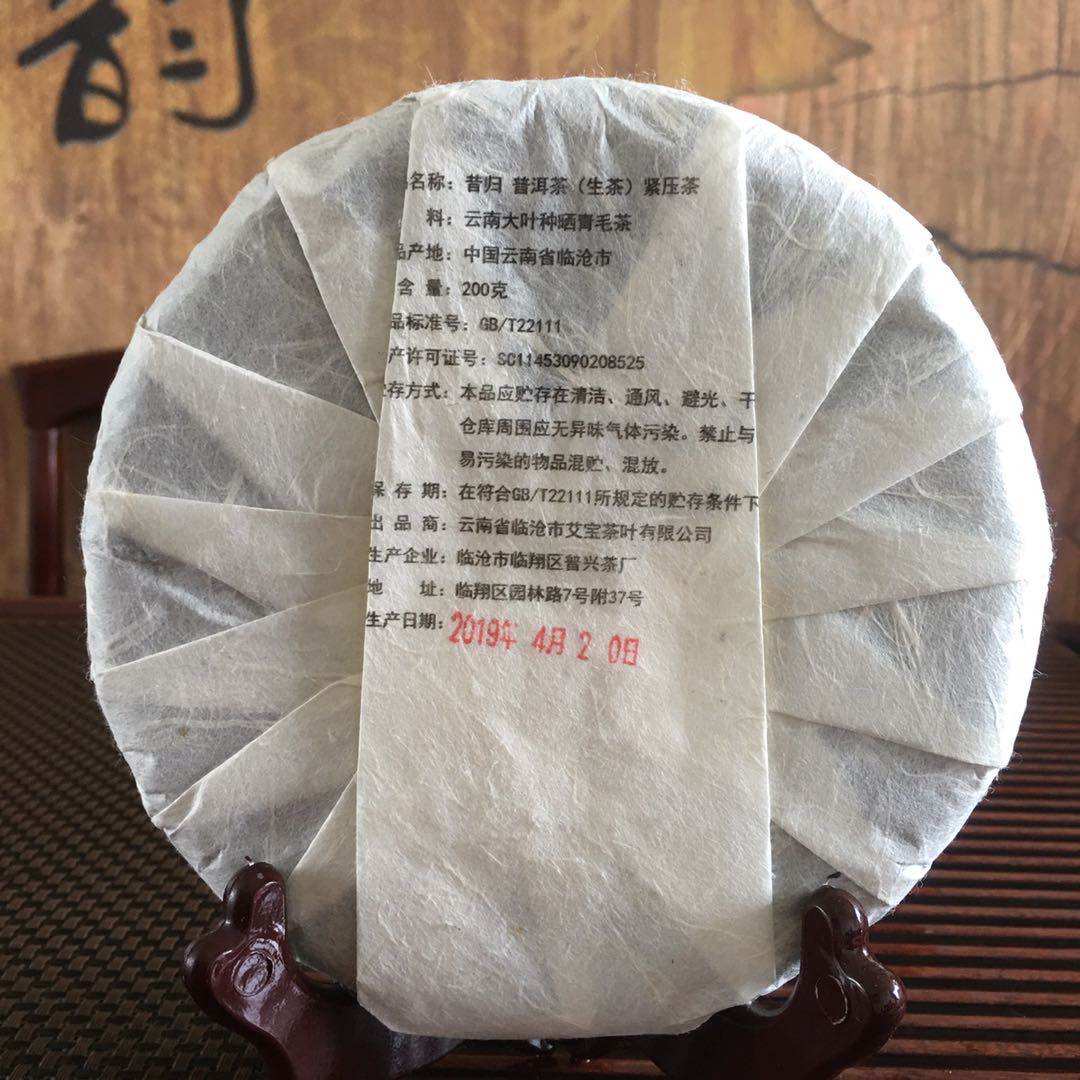 韵
名称：昔归 普洱茶（生茶）紧压茶
料：云南大叶种晒青毛茶
品产地：中国云南省临沧市
含 量：200克
品标准号：GB/T22111
产许可证号：SC11453090208525
存方式：本品应贮存在清洁、通风、避光、干
仓库周围应无异味气体污染。禁止与
易污染的物品混贮、混放。
保 存 期：在符合GB/T22111所规定的贮存条件下
出 品 商：云南省临沧市艾宝茶叶有限公司
生产企业：临沧市临翔区普兴茶厂
地 址：临翔区园林路7号附37号
生产日期：2019年 4月 2 0日